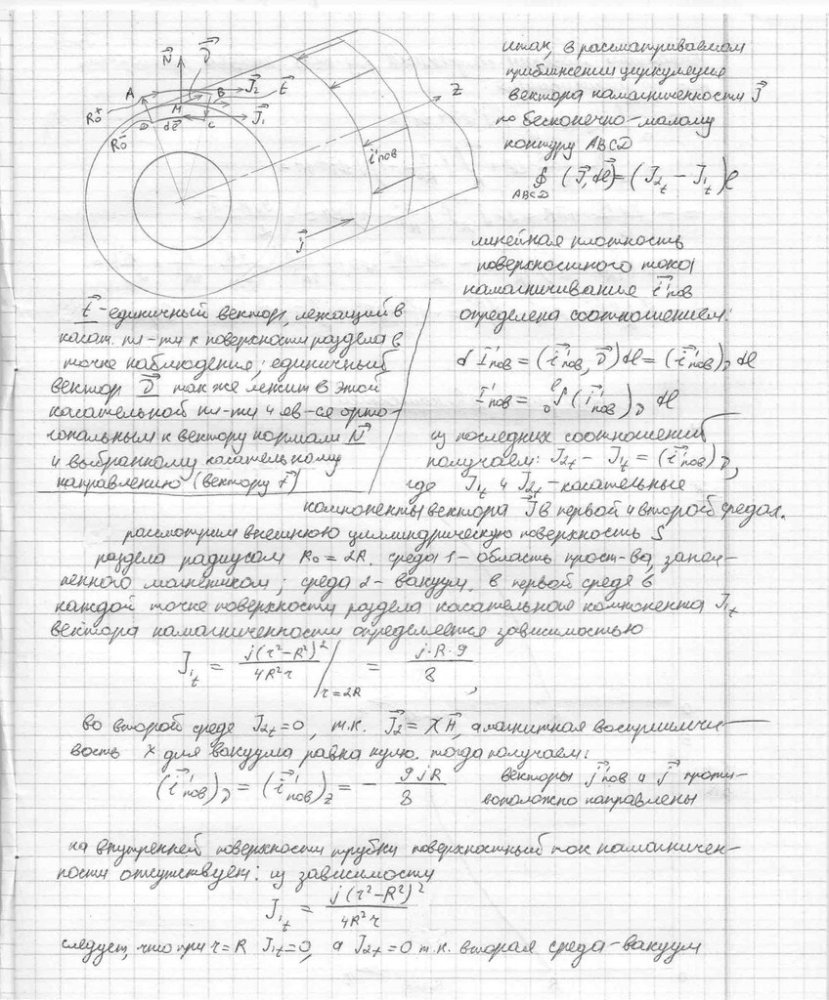 N⃗
D⃗
A
B
J⃗₂
t⃗
R₀⁺
M
z
R₀⁻
D
dℓ⃗
C
J⃗₁
i⃗'пов
j⃗
итак, в рассматриваемом
приближении циркуляция
вектора намагниченности J⃗
по бесконечно-малому
контуру ABCD
∮ (J⃗, dℓ⃗) = (J₂t − J₁t)ℓ
ABCD
линейная плотность
поверхностного тока
намагничивание i⃗'пов
определена соотношением:
d I'пов = (i⃗'пов, D⃗) dℓ = (i⃗'пов)D dℓ
I'пов = ₀∫^ℓ (i⃗'пов)D dℓ
из последних соотношений
получаем: J₂t − J₁t = (i⃗'пов)D,
где J₁t и J₂t - касательные
t⃗ - единичный вектор, лежащий в
касат. пл-ти к поверхности раздела в
точке наблюдения; единичный
вектор D⃗ так же лежит в этой
касательной пл-ти и яв-ся орто-
гональным к вектору нормали N⃗
и выбранному касательному
направлению (вектору t⃗)
компоненты вектора J⃗ в первой и второй средах.
рассмотрим внешнюю цилиндрическую поверхность S
раздела радиусом R₀ = 2R. среда 1 - область прост-ва, запол-
ненного магнетиком; среда 2 - вакуум. в первой среде в
каждой точке поверхности раздела касательная компонента J₁t
вектора намагниченности определяется зависимостью
J₁t = j(r²−R²)²/4R²r |r=2R = j·R·9/8,
во второй среде J₂t = 0, т.к. J⃗₂ = χH⃗, а магнитная восприимчи-
вость χ для вакуума равна нулю. тогда получаем:
(i⃗'пов)D = (i⃗'пов)z = − 9jR/8
векторы j⃗'пов и j⃗ проти-
воположно направлены
на внутренней поверхности трубки поверхностный ток намагничен-
ности отсутствует: из зависимости
J₁t = j(r²−R²)²/4R²r
следует, что при r=R J₁t=0, а J₂t=0 т.к. вторая среда-вакуум